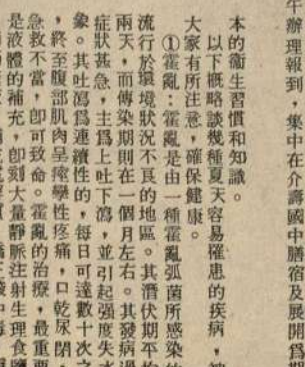 午辦理報到，集中在介壽國中膳宿及展開爲期
本的衞生習慣和知識。
以下概略談幾種夏天容易罹患的疾病，
大家有所注意，確保健康。
①霍亂：霍亂是由一種霍亂弧菌所感染的
流行於環境狀況不良的地區。其潛伏期平均
兩天，而傳染期則在一個月左右。其發病過
症狀甚急，主爲上吐下瀉，並引起强度失水
象。其吐瀉爲連續性的，每日可達數十次之
，終至腹部肌肉呈痙攣性疼痛，口乾尿閉，
急救不當，卽可致命。霍亂的治療，最重要
是液體的補充，卽刻大量靜脈注射生理食鹽